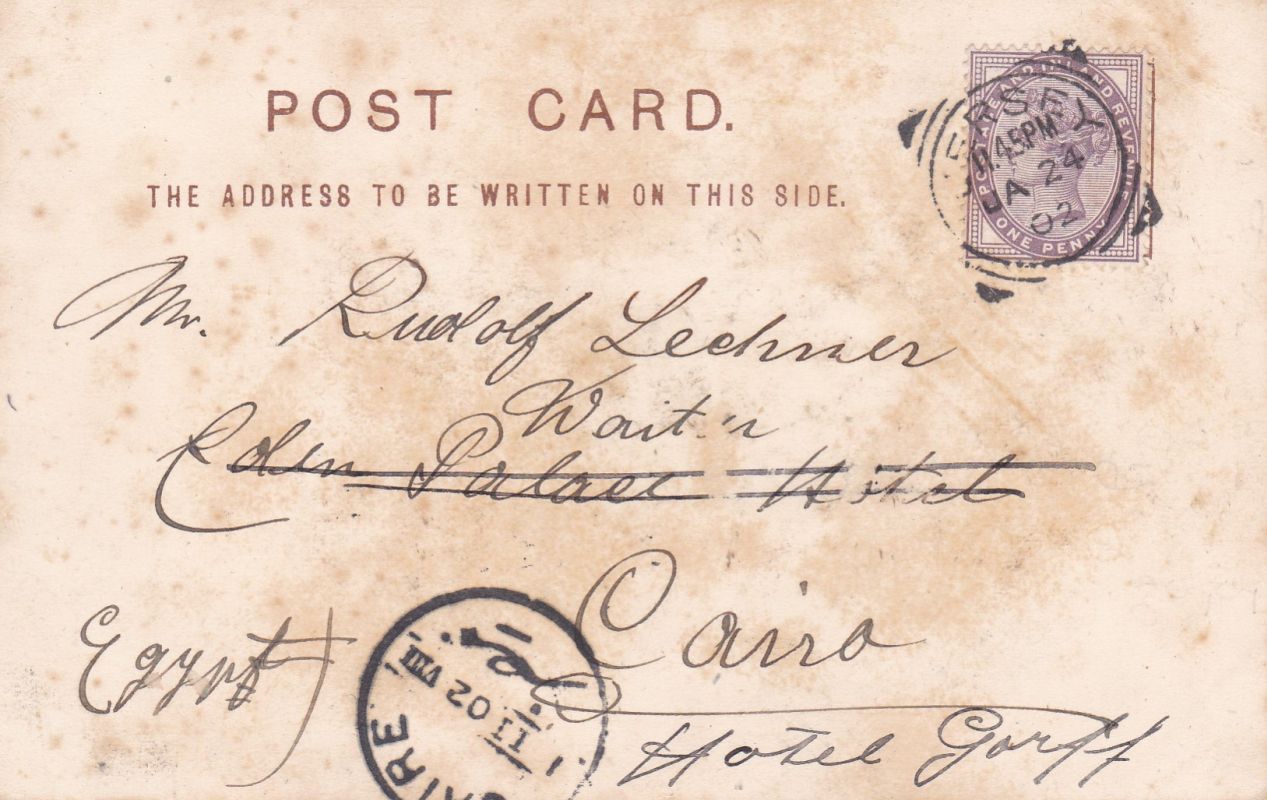 POST CARD.
THE ADDRESS TO BE WRITTEN ON THIS SIDE.
POSTAGE AND INLAND REVENUE
ONE PENNY
JERSEY
45PM
JA 24
02
Mr. Rudolf Lechner
Waiter
Eden Palace Hotel
Cairo
Egypt)
Hotel Gorff
CAIRE
II 02 VIII